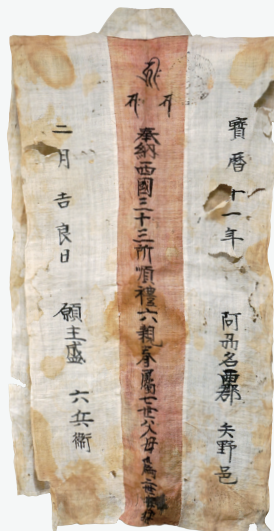 寳暦十一年 阿刕名西郡 矢野邑
奉納西國三十三所順禮六親眷屬七世父母為
二月吉良日 願主盛 六兵衛